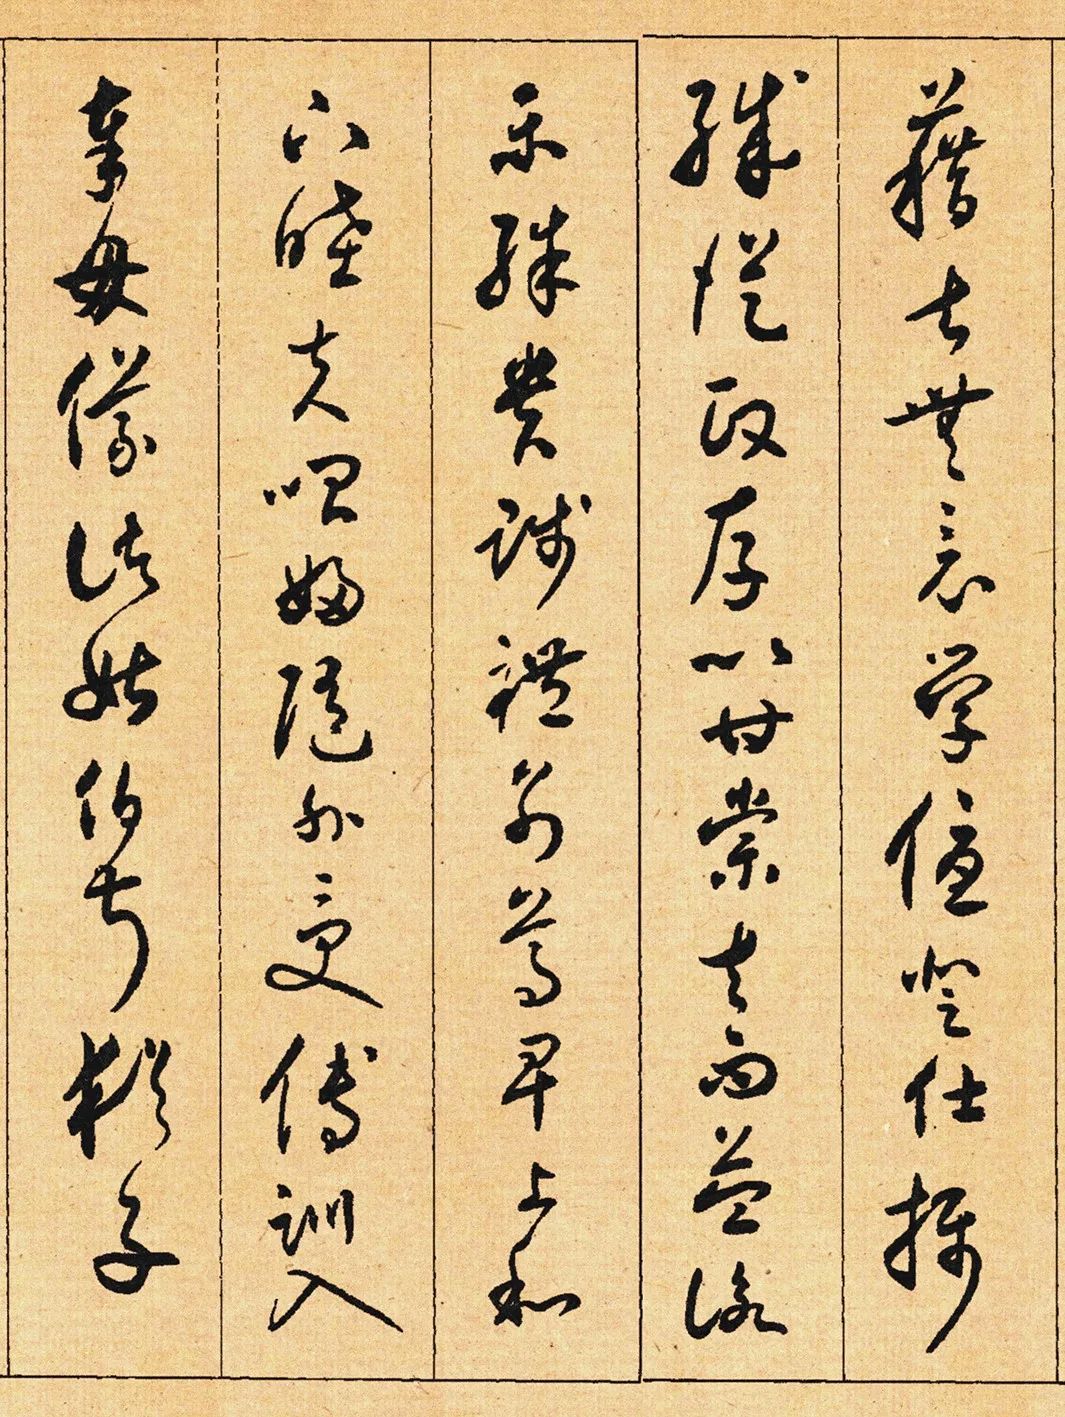 藉甚無竟學優登仕攝
職從政存以甘棠去而益詠
樂殊貴賤禮別尊卑上和
下睦夫唱婦隨外受傅訓入
奉母儀諸姑伯叔猶子